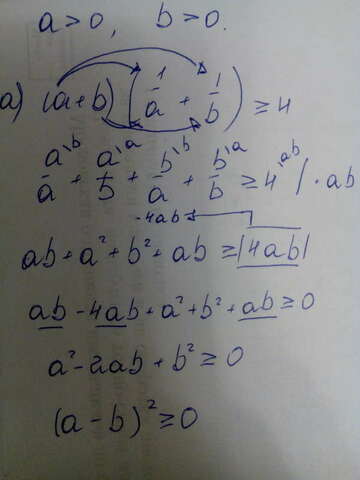 a > 0, b > 0.
а) (a + b) (1/a + 1/b) ≥ 4
a^{\b}/a + a^{\a}/b + b^{\b}/a + b^{\a}/b ≥ 4^{\ab} / · ab
-4ab
ab + a² + b² + ab ≥ |4ab|
ab - 4ab + a² + b² + ab ≥ 0
a² - 2ab + b² ≥ 0
(a - b)² ≥ 0